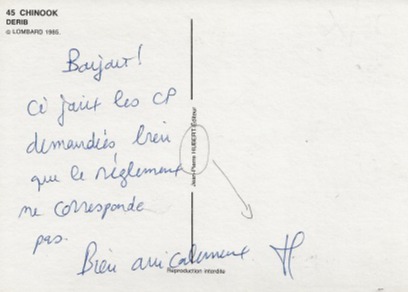 45 CHINOOK
DERIB
© LOMBARD 1985.
Bonjour!
Ci joint les CP
demandées bien
que le règlement
ne corresponde
pas.
Bien amicalement.
Jean-Pierre HUBERT Editeur
Reproduction interdite